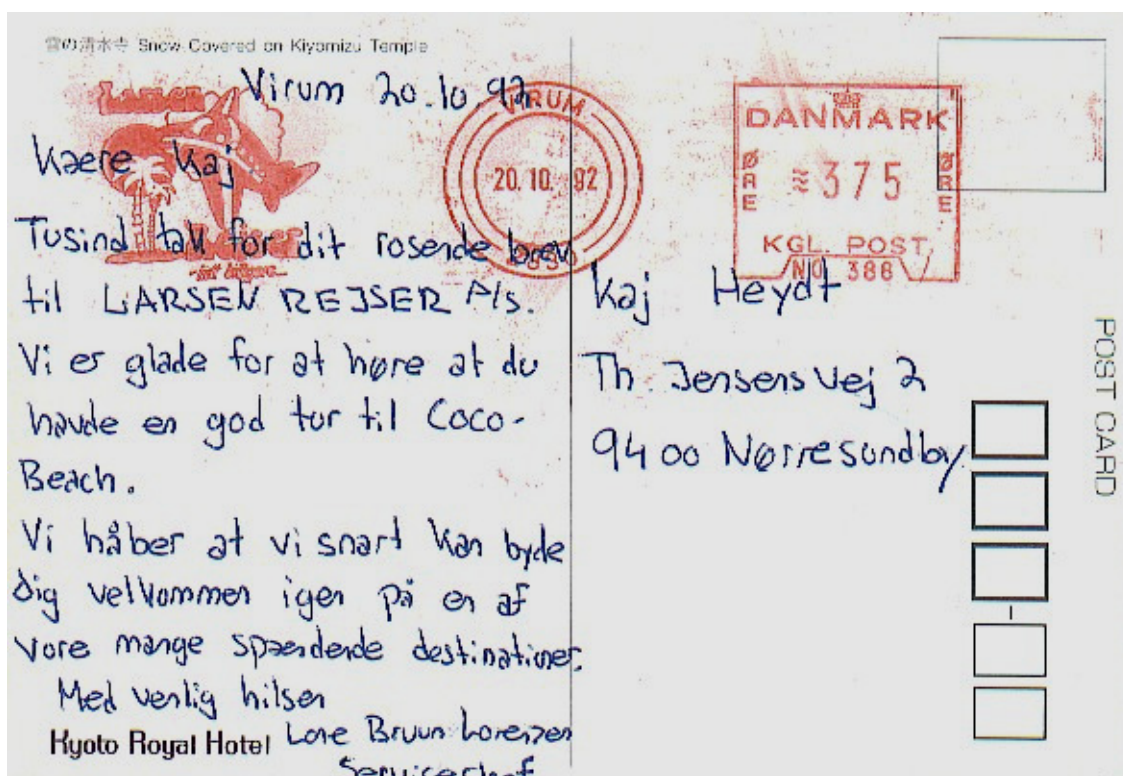 雪の清水寺 Snow Covered on Kiyomizu Temple
Virum 20.10.92
Kære Kaj
Tusind tak for dit rosende brev
til LARSEN REJSER A/s.
Vi er glade for at høre at du
havde en god tur til Coco-
Beach.
Vi håber at vi snart kan byde
dig velkommen igen på en af
vore mange spændende destinationer.
Med venlig hilsen
Lone Bruun Lorenzen
Servicechef
Kyoto Royal Hotel
Larsen
Rejser
VIRUM
20.10.92
DANMARK
ØRE 375 ØRE
KGL. POST
NO 388
Kaj Heydt
Th. Jensens Vej 2
9400 Nørresundby
POST CARD